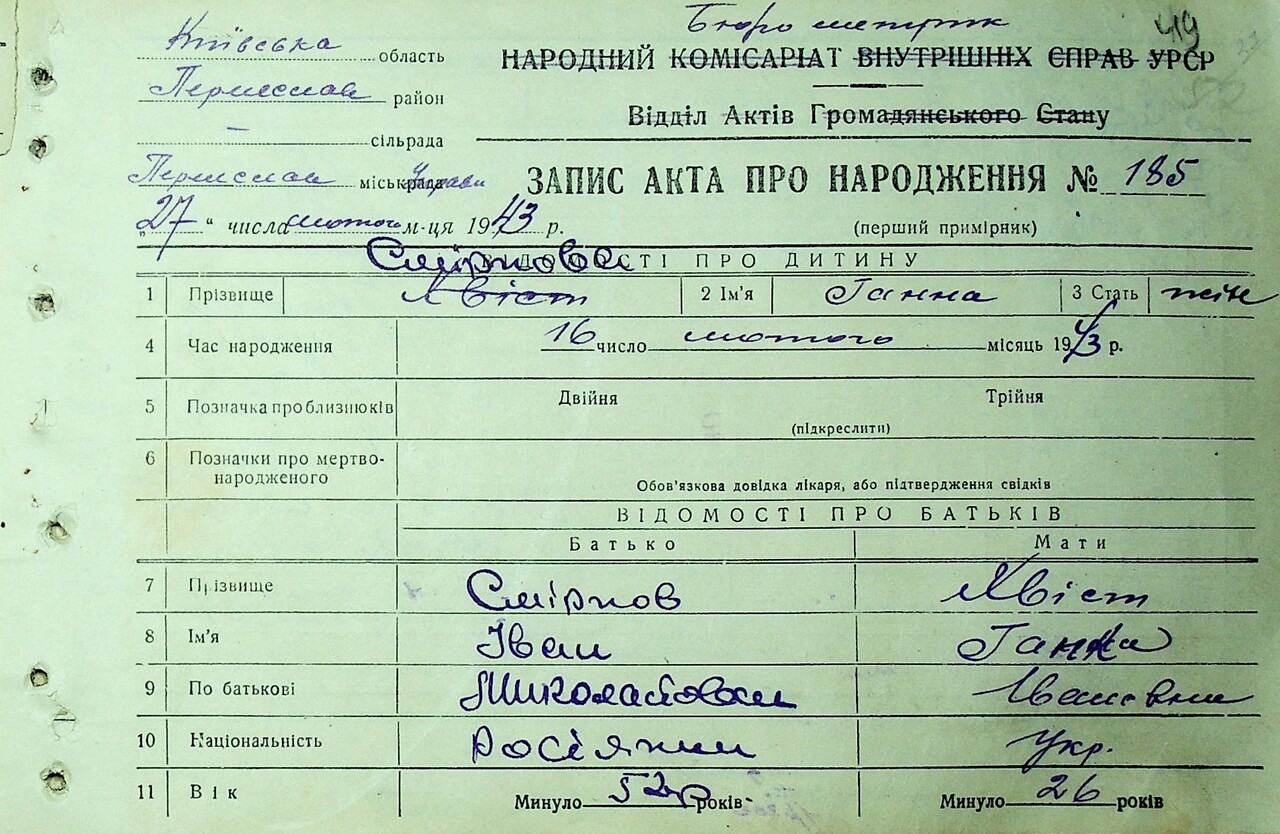 Бюро метрик 49
Київська область
НАРОДНИЙ КОМІСАРІАТ ВНУТРІШНІХ СПРАВ УРСР
Переяслав район
Відділ Актів Громадянського Стану
— сільрада
Переяслав міськрада Управи
ЗАПИС АКТА ПРО НАРОДЖЕННЯ № 185
„27“ числа лютого м-ця 1943 р.
(перший примірник)
Смірнова
ВІДОМОСТІ ПРО ДИТИНУ
1 Прізвище Хвіст 2 Ім'я Ганна 3 Стать жін
4 Час народження 16 число лютого місяць 1943 р.
5 Позначка про близнюків Двійня Трійня
(підкреслити)
6 Позначки про мертво-
народженого
Обов'язкова довідка лікаря, або підтвердження свідків
ВІДОМОСТІ ПРО БАТЬКІВ
Батько Мати
7 Прізвище Смірнов Хвіст
8 Ім'я Іван Ганна
9 По батькові Миколайович Івановна
10 Національність Росіянин Укр.
11 Вік Минуло 52 років Минуло 26 років